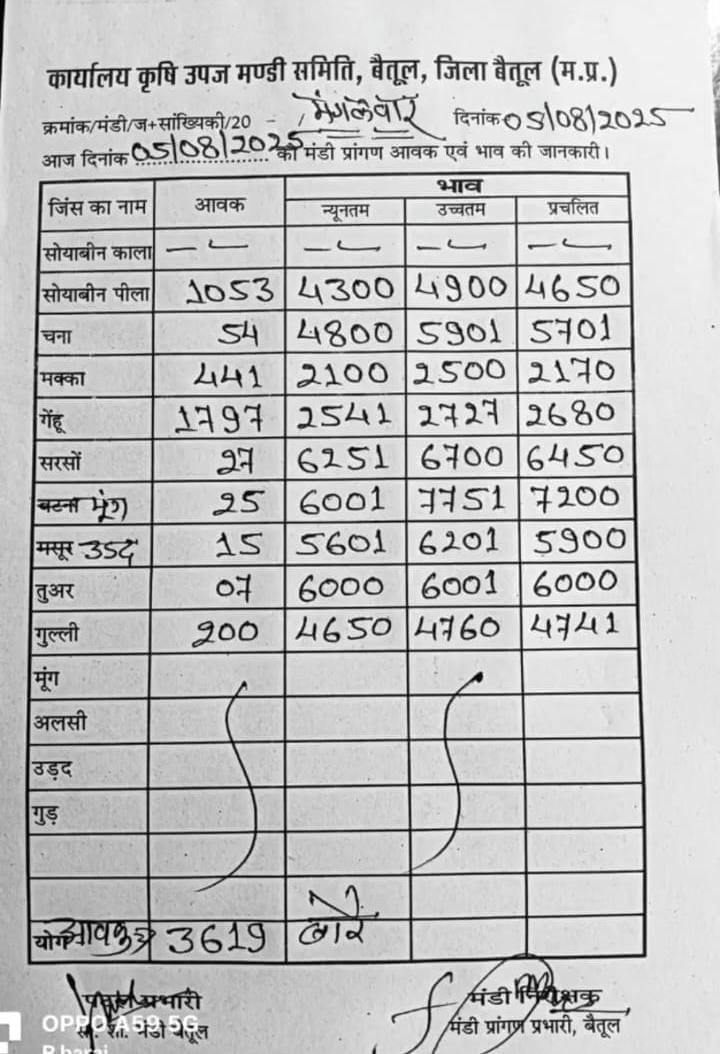 कार्यालय कृषि उपज मण्डी समिति, बैतूल, जिला बैतूल (म.प्र.)
क्रमांक/मंडी/ज+सांख्यिकी/20 - / मंगलवार दिनांक 05/08/2025
आज दिनांक 05/08/2025 की मंडी प्रांगण आवक एवं भाव की जानकारी।
भाव
जिंस का नाम आवक न्यूनतम उच्चतम प्रचलित
सोयाबीन काला — — — —
सोयाबीन पीला 1053 4300 4900 4650
चना 54 4800 5901 5701
मक्का 441 2100 2500 2170
गेंहू 1797 2541 2727 2680
सरसों 27 6251 6700 6450
बटना मूंग 25 6001 7751 7200
मसूर उडद 15 5601 6201 5900
तुअर 07 6000 6001 6000
गुल्ली 200 4650 4760 4741
मूंग
अलसी
उड़द
गुड़
योग आवक 3619 बोरे
प्रभारी मंडी निरीक्षक
मंडी बैतूल मंडी प्रांगण प्रभारी, बैतूल
OPPO A59 5G